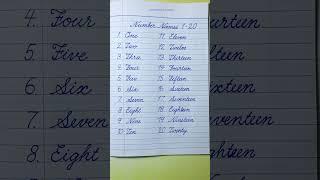 4. Four
5. Five
6. Six
7. Seven
8. Eight
Number Names 1-20
1. One 11. Eleven
2. Two 12. Twelve
3. Three 13. Thirteen
4. Four 14. Fourteen
5. Five 15. Fifteen
6. Six 16. Sixteen
7. Seven 17. Seventeen
8. Eight 18. Eighteen
9. Nine 19. Nineteen
10. Ten 20. Twenty